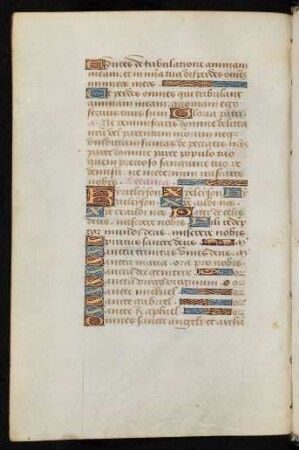 Educes de tribulatione animam
meam: et in mia tua disperdes oms
inimicos meos
Et perdes omnes qui tribulant
animam meam: quoniam ego
servus tuus sum Gloria patri
Ne reminiscaris domine delicta
nra vel parentum nostrorum neq
vindictam sumas de peccatis nris
parce domine parce populo tuo
quem precioso sanguine tuo re
demisti: ne irascaris
nobis
Kyrieleyson Xpeleyson
Kyrieleyson Xpe audi nos
Xpe exaudi nos Pater de celis
deus miserere nobis Fili redep
tor mundi deus miserere nobis
Spiritus sancte deus
Sancta trinitas unus deus
Sancta maria ora pro nobis
Sancta dei genitrix or
Sancta virgo virginum or
Sancte michael or
Sancte gabriel or
Sancte raphael or
Omnes sancti angeli et archa